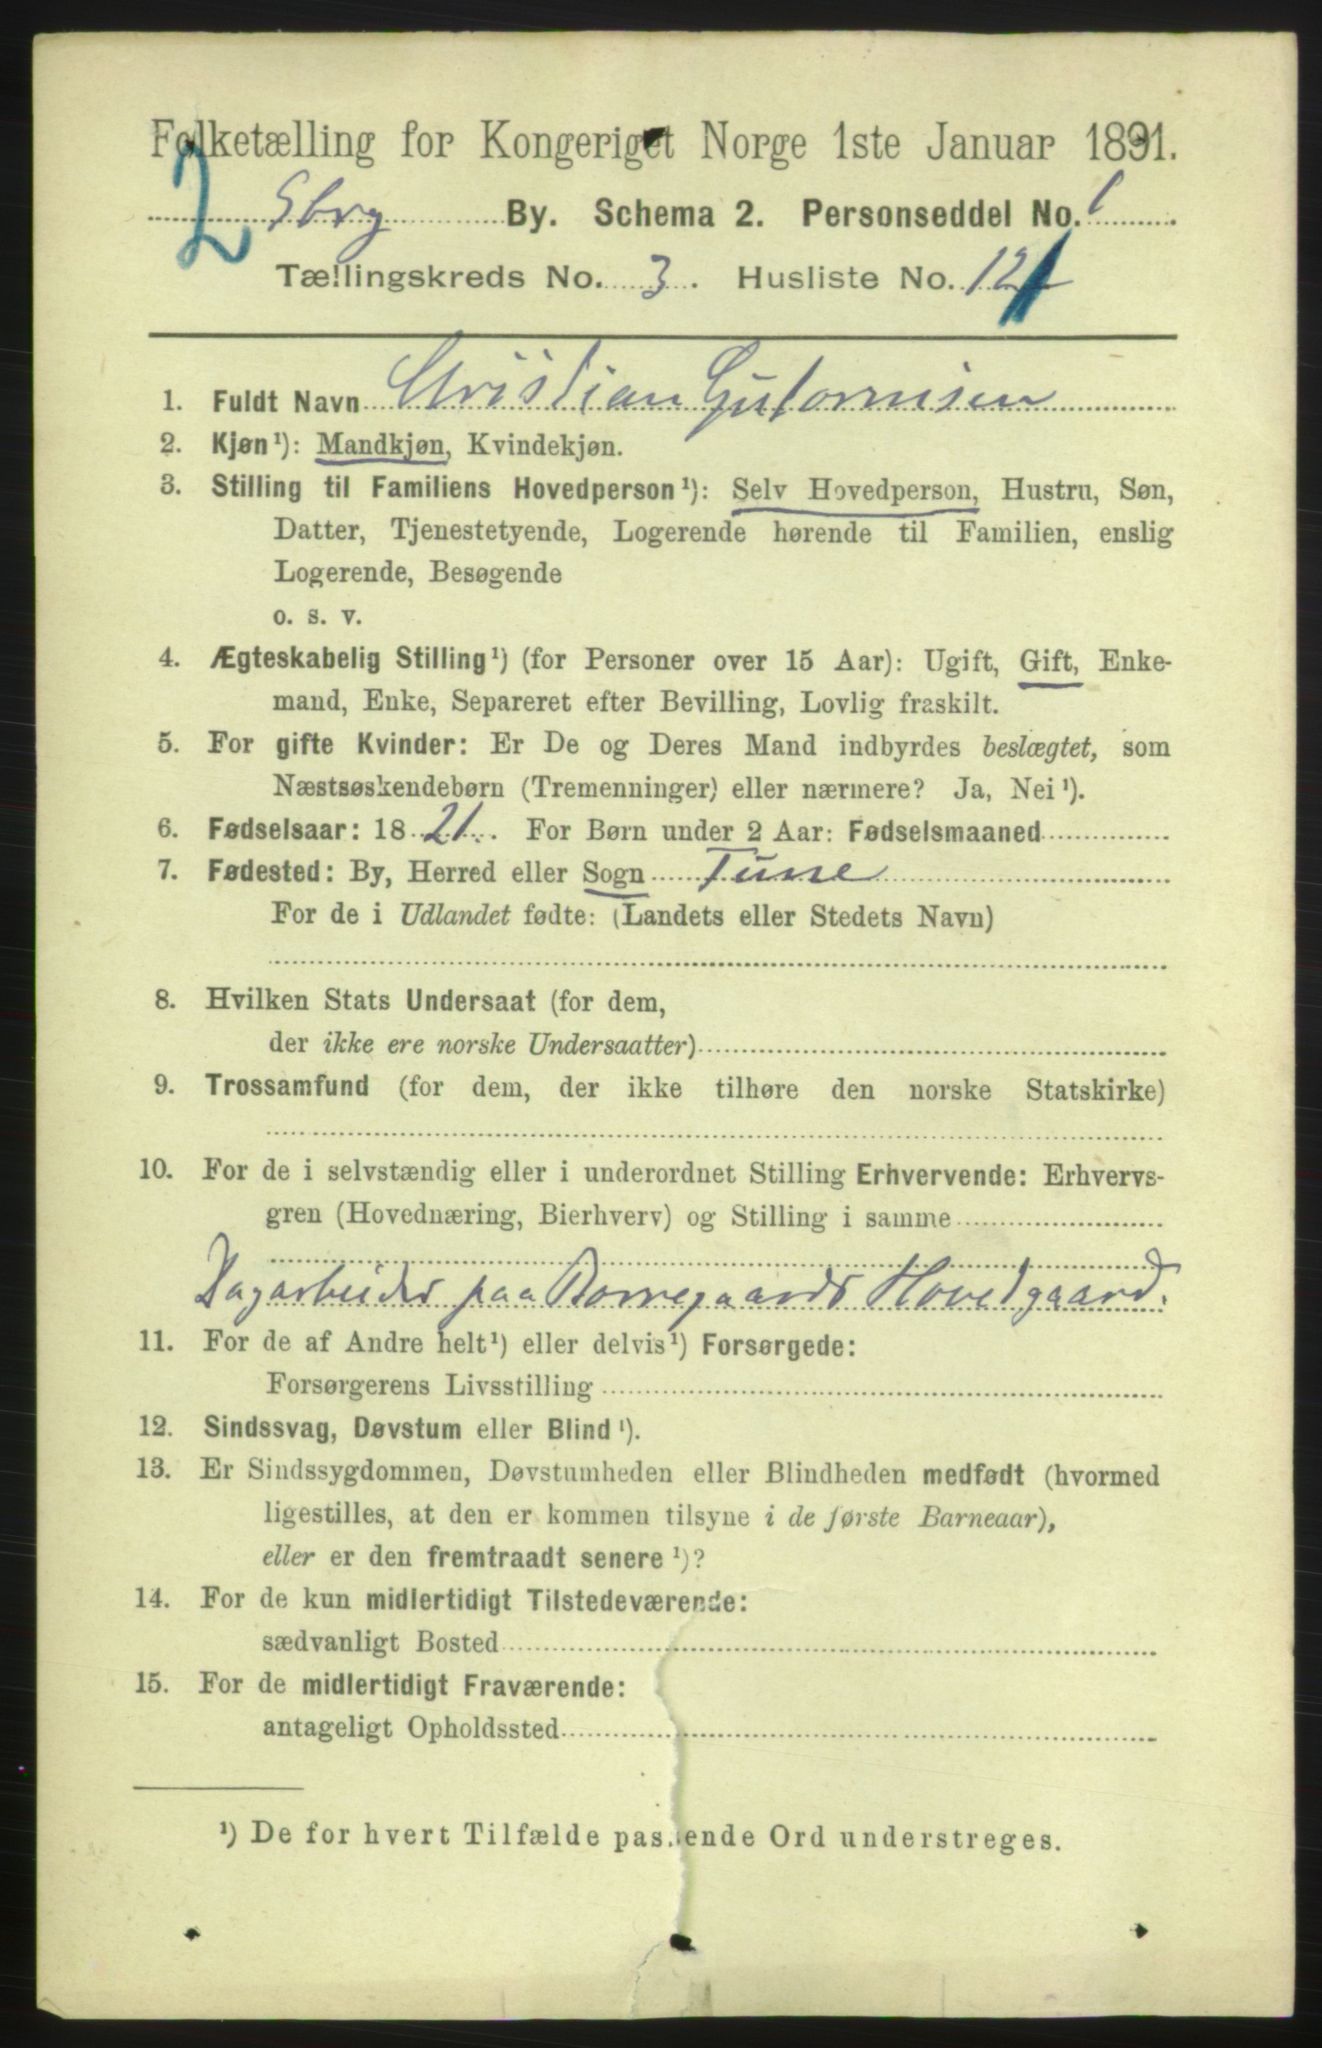 Folketælling for Kongeriget Norge 1ste Januar 1891.
2 Sbrg By. Schema 2. Personseddel No. 1.
Tællingskreds No. 3. Husliste No.
1. Fuldt Navn Christian Gutormsen
2. Kjøn¹): Mandkjøn, Kvindekjøn.
3. Stilling til Familiens Hovedperson¹): Selv Hovedperson, Hustru, Søn,
Datter, Tjenestetyende, Logerende hørende til Familien, enslig
Logerende, Besøgende
o. s. v.
4. Ægteskabelig Stilling¹) (for Personer over 15 Aar): Ugift, Gift, Enke-
mand, Enke, Separeret efter Bevilling, Lovlig fraskilt.
5. For gifte Kvinder: Er De og Deres Mand indbyrdes beslægtet, som
Næstsøskendebørn (Tremenninger) eller nærmere? Ja, Nei¹).
6. Fødselsaar: 1821. For Børn under 2 Aar: Fødselsmaaned
7. Fødested: By, Herred eller Sogn Tune
For de i Udlandet fødte: (Landets eller Stedets Navn)
8. Hvilken Stats Undersaat (for dem,
der ikke ere norske Undersaatter)
9. Trossamfund (for dem, der ikke tilhøre den norske Statskirke)
10. For de i selvstændig eller i underordnet Stilling Erhvervende: Erhvervs-
gren (Hovednæring, Bierhverv) og Stilling i samme
Dagarbeider paa Borregaards Hovedgaard.
11. For de af Andre helt¹) eller delvis¹) Forsørgede:
Forsørgerens Livsstilling
12. Sindssvag, Døvstum eller Blind¹).
13. Er Sindssygdommen, Døvstumheden eller Blindheden medfødt (hvormed
ligestilles, at den er kommen tilsyne i de første Barneaar),
eller er den fremtraadt senere¹)?
14. For de kun midlertidigt Tilstedeværende:
sædvanligt Bosted
15. For de midlertidigt Fraværende:
antageligt Opholdssted
¹) De for hvert Tilfælde passende Ord understreges.